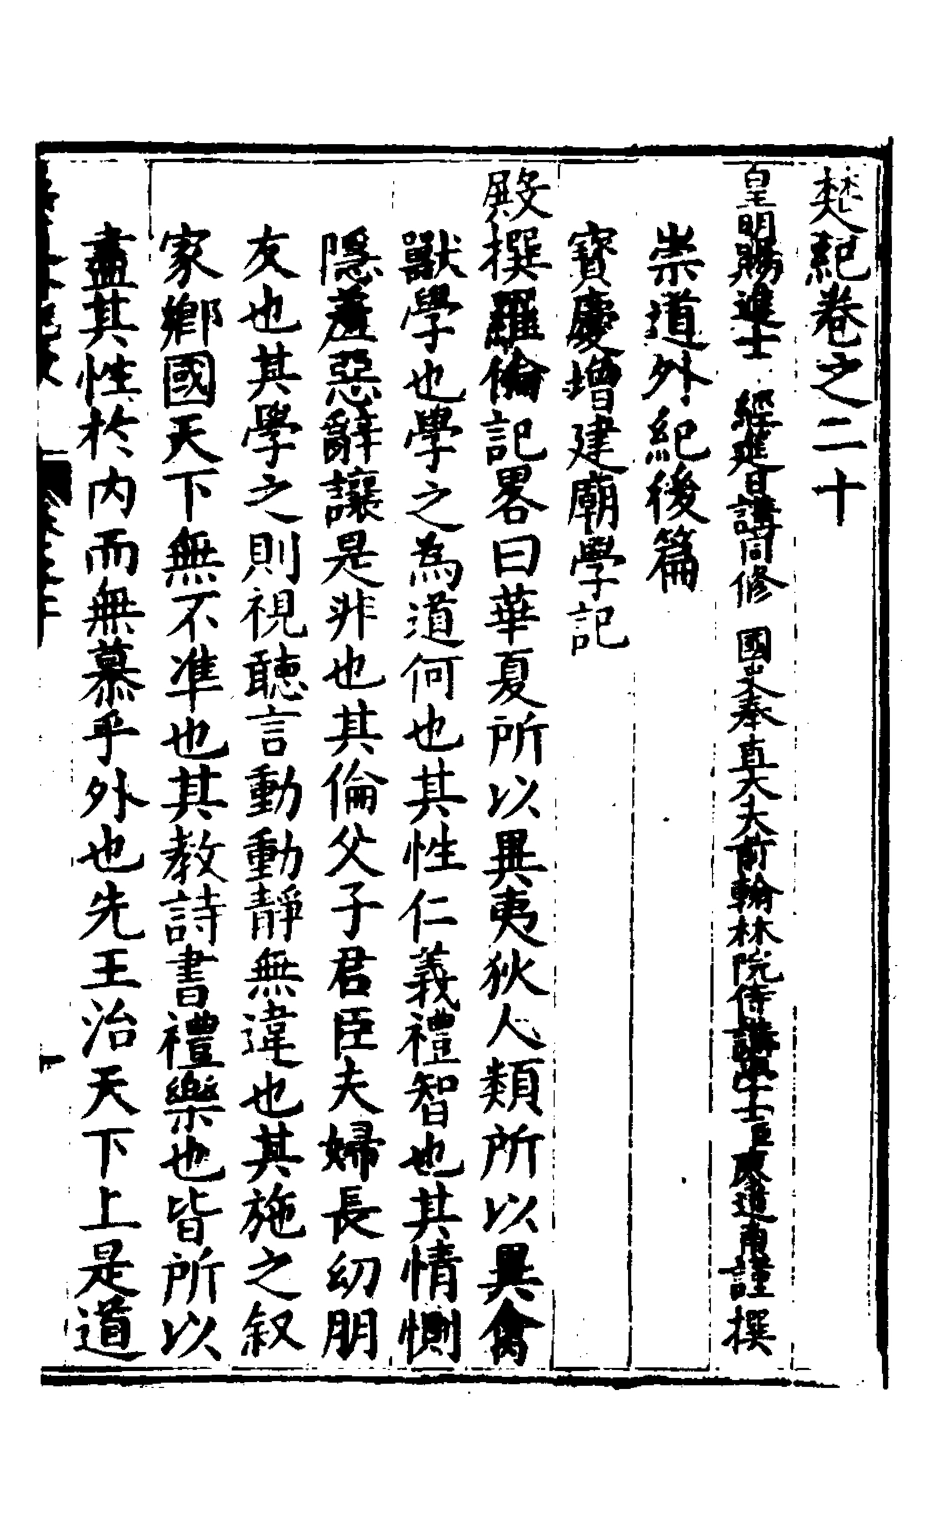 楚紀卷之二十
皇明賜進士 經進日講同修 國史奉直大夫前翰林院侍講學士臣廖道南謹撰
崇道外紀後篇
寶慶增建廟學記
殿撰羅倫記畧曰華夏所以異夷狄人類所以異禽
獸學也學之為道何也其性仁義禮智也其情惻
隱羞惡辭讓是非也其倫父子君臣夫婦長幼朋
友也其學之則視聽言動動靜無違也其施之叙
家鄉國天下無不準也其教詩書禮樂也皆所以
盡其性於內而無慕乎外也先王治天下上是道